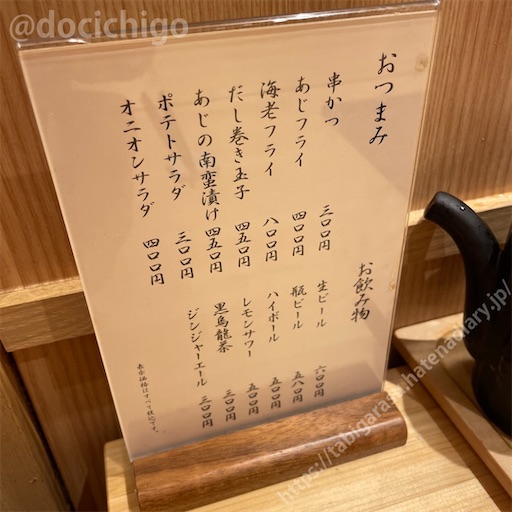 @docichigo
おつまみ
串かつ 三〇〇円
あじフライ 四〇〇円
海老フライ 八〇〇円
だし巻き玉子 四五〇円
あじの南蛮漬け 四五〇円
ポテトサラダ 三〇〇円
オニオンサラダ 四〇〇円
お飲み物
生ビール 六〇〇円
瓶ビール 五八〇円
ハイボール 五〇〇円
レモンサワー 五〇〇円
黒烏龍茶 三〇〇円
ジンジャーエール 三〇〇円
表示価格はすべて税込です。
https://tabigarasu.hatenadiary.jp/